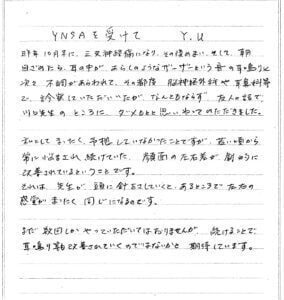 YNSAを受けて Y.U
昨年10月末に、三叉神経痛になり、その後めまい、そして、朝
目ざめたら、耳の中が あらしのようなザーザーという音の耳鳴りと
次々 不調があらわれて、その都度 脳神経外科や耳鼻科等
で、診察していただいたが なんともならず 友人の話で
川口先生の ところに ダメもとと思い みていただきました。
私にとって まったく 予想していなかったことですが、 若い頃から
常に 悩まされ 続けていた 顔面の左右差が 劇的に
改善されているということです。
それは 先生が 頭に 針をさしていくと、あるところで 左右の
感覚が まったく 同じになるのです。
まだ 数回しか やっていただいてはおりませんが、 続けることで、
耳鳴り等改善されていくのではないかと 期待しています。